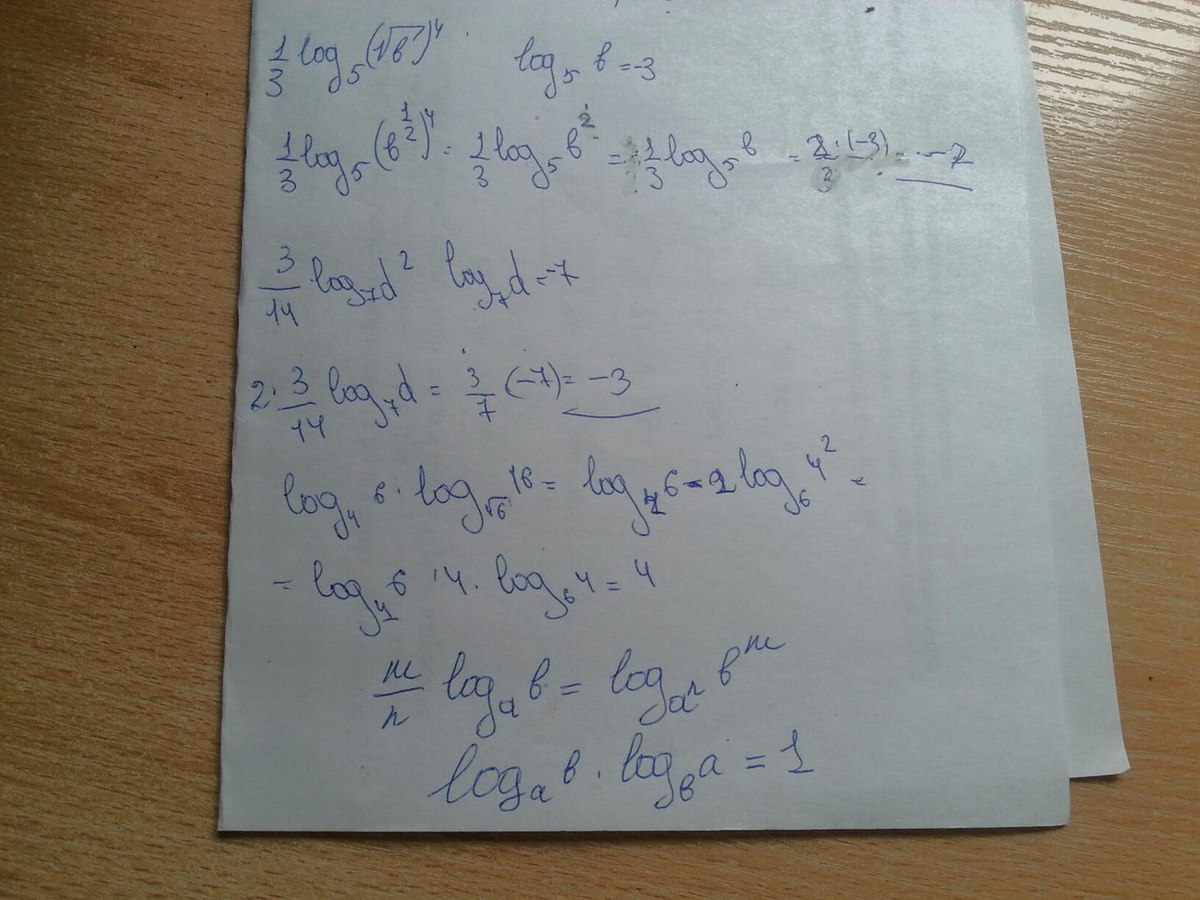 1/3 log₅(√в)⁴ log₅ в = -3
1/3 log₅(в^(1/2))⁴ = 1/3 log₅ в² = 1/3 log₅ в = 2/3 · (-3) = -2
3/14 log₇d² log₇d = -7
2 · 3/14 log₇d = 3/7 (-7) = -3
log₄ 6 · log_√6 16 = log₄ 6 · 2 log₆ 4² =
= log₄ 6 · 4 · log₆ 4 = 4
m/n logₐ в = log_aⁿ в^m
logₐ в · log_в a = 1